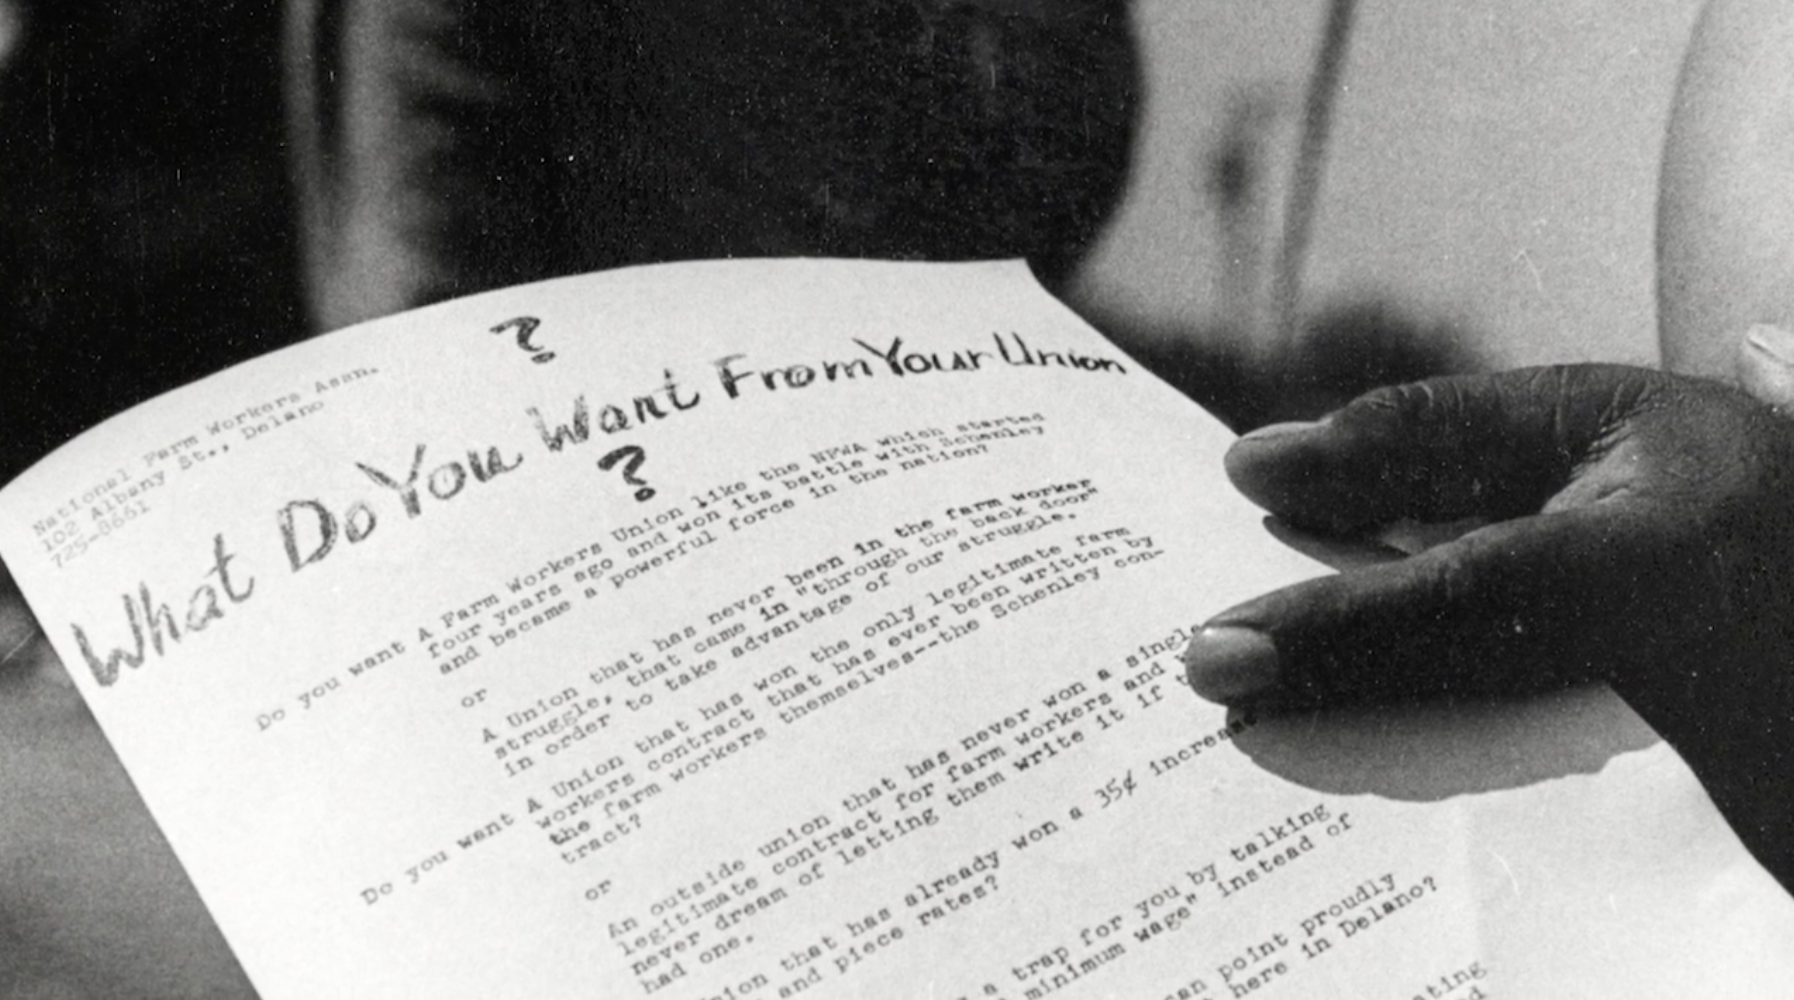 National Farm Workers Assn.
102 Albany St., Delano
725-8661
?
What Do You Want From Your Union
?
Do you want A Farm Workers Union like the NFWA which started
four years ago and won its battle with Schenley
and became a powerful force in the nation?
or
A Union that has never been in the farm worker
struggle, that came in "through the back door"
in order to take advantage of our struggle.
Do you want A Union that has won the only legitimate farm
workers contract that has ever been written by
the farm workers themselves--the Schenley con-
tract?
or
An outside union that has never won a single
legitimate contract for farm workers and
never dream of letting them write it if
had one.
that has already won a 35¢ increase
and piece rates?
a trap for you by talking
minimum wage" instead of
point proudly
here in Delano?